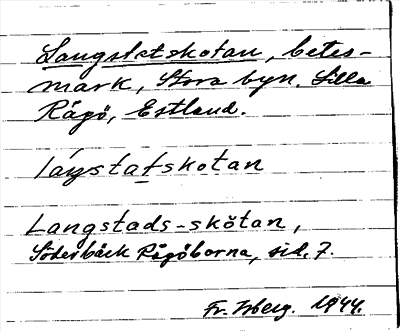 Langstatskotan, betes-
mark, Stora byn. Lilla
Rågö, Estland.
láŋstatskotan
Langstads-skötan,
Söderbäck Rågöborna, sid. 7.
Fr. Isberg. 1944.